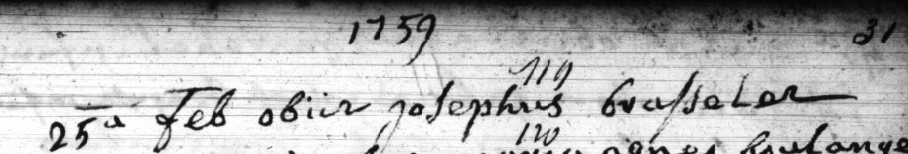 1759 31
119
25a Feb obiit josephus brasseler
120
agnes boulange